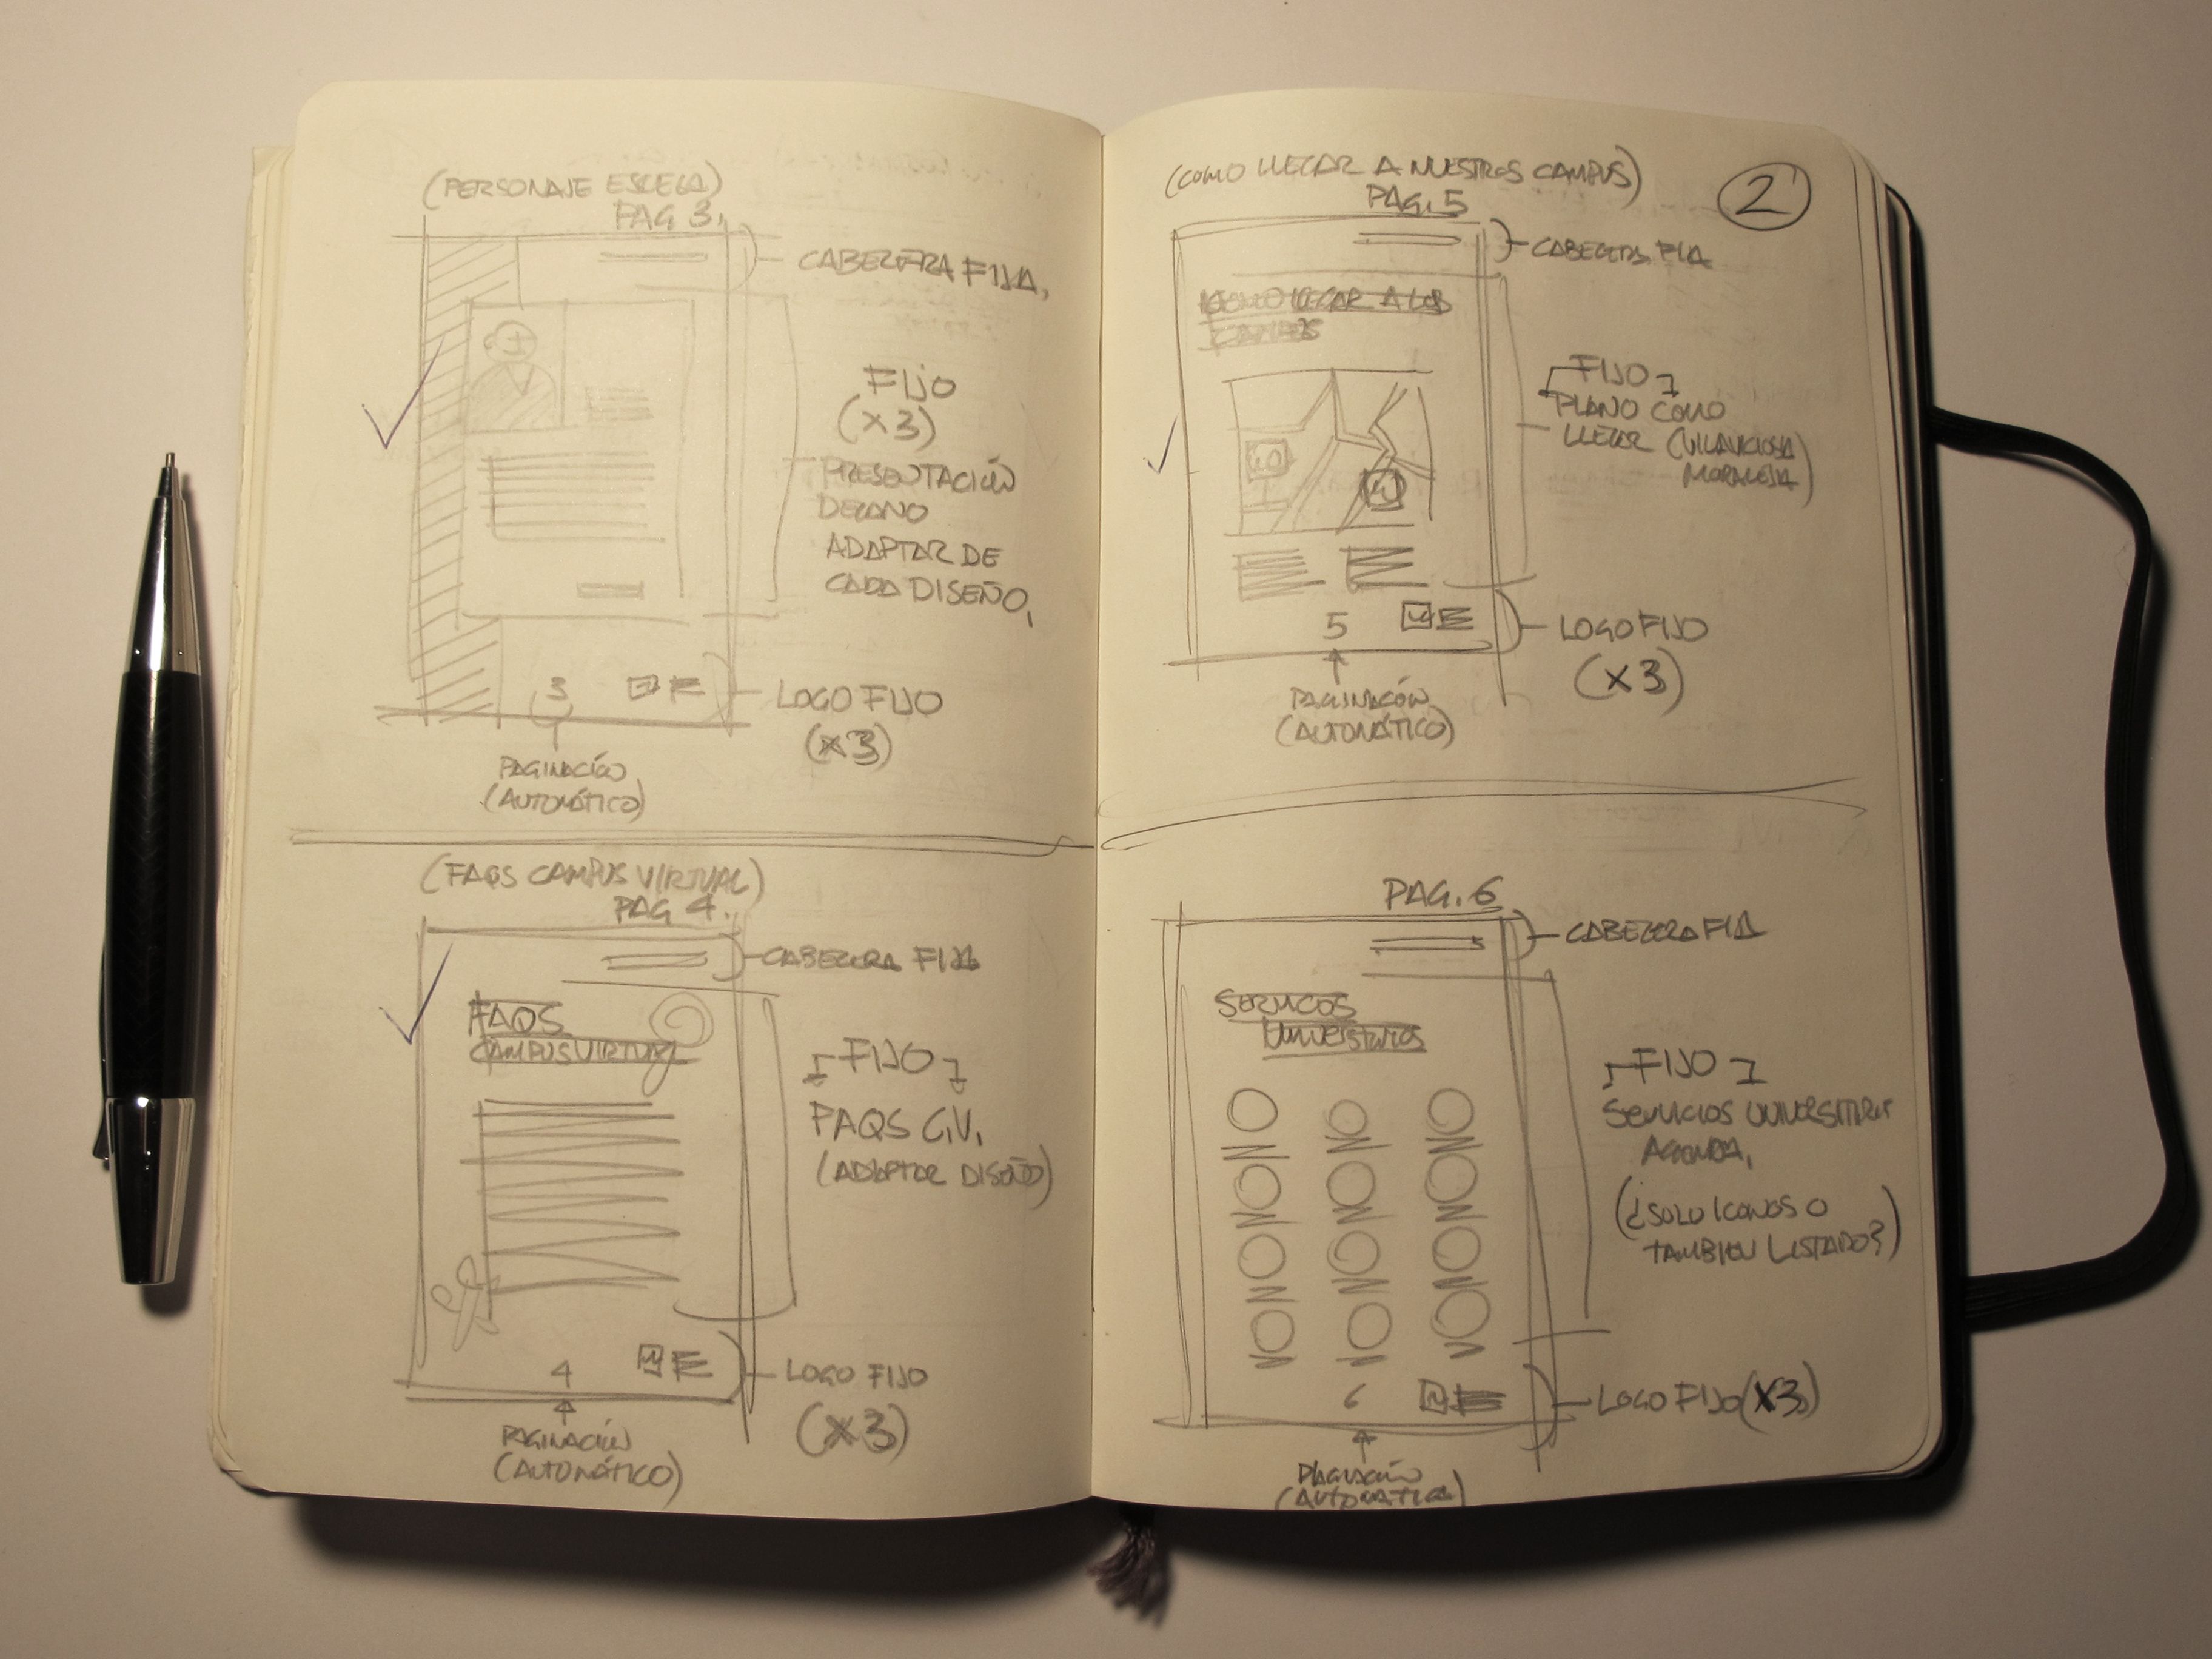 (PERSONAJE ESCUELA)
PAG 3.
CABECERA FIJA.
FIJO
(X3)
PRESENTACIÓN
DECANO
ADAPTAR DE
CADA DISEÑO.
3
LOGO FIJO
(X3)
PAGINACIÓN
(AUTOMÁTICO)
(FAQS CAMPUS VIRTUAL)
PAG 4.
CABECERA FIJA
FAQS
CAMPUS VIRTUAL
FIJO
FAQS C.V.
(ADAPTAR DISEÑO)
4
LOGO FIJO
(X3)
PAGINACIÓN
(AUTOMÁTICO)
2
(COMO LLEGAR A NUESTROS CAMPUS)
PAG. 5
CABECERA FIJA
COMO LLEGAR A LOS
CAMPUS
FIJO
PLANO COMO
LLEGAR (VILLAVICIOSA
MORALEJA)
5
LOGO FIJO
(X3)
PAGINACIÓN
(AUTOMÁTICO)
PAG. 6
CABECERA FIJA
SERVICIOS
UNIVERSITARIOS
FIJO
SERVICIOS UNIVERSITARIOS
AGENDA.
(¿SOLO ICONOS O
TAMBIEN LISTADO?)
6
LOGO FIJO (X3)
PAGINACIÓN
(AUTOMATICA)